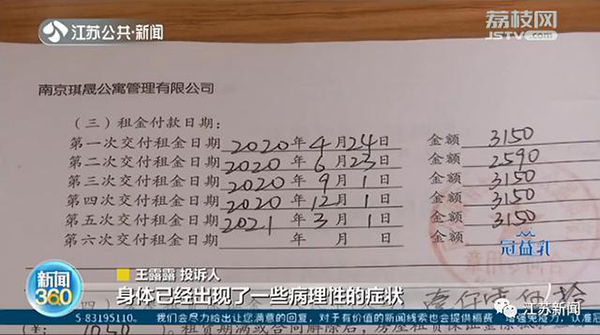 江苏公共·新闻
荔枝网
JSTV.COM
南京琪晟公寓管理有限公司
(三)租金付款日期:
第一次交付租金日期 2020年4月24日 金额 3150
第二次交付租金日期 2020年6月23日 金额 2590
第三次交付租金日期 2020年9月1日 金额 3150
第四次交付租金日期 2020年12月1日 金额 3150
第五次交付租金日期 2021年3月1日 金额 3150
第六次交付租金日期 年 月 日 金额
冠益乳
新闻
360
王露露 投诉人
身体已经出现了一些病理性的症状
江苏新闻
S 83195110。 我们会尽力给出让您满意的回复,对于有价值的新闻线索也会提供稿费